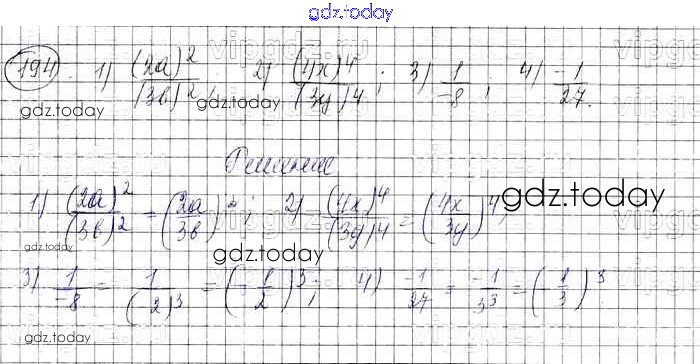 gdz.today
vipgdz.ru
194. 1) (2a)²/(3в)²; 2) (4x)⁴/(3y)⁴; 3) 1/-8; 4) -1/27.
gdz.today gdz.today
Решение
1) (2a)²/(3в)² = (2a/3в)²; 2) (4x)⁴/(3y)⁴ = (4x/3y)⁴;
gdz.today
gdz.today
gdz.today
3) 1/-8 = 1/(-2)³ = (-1/2)³; 4) -1/27 = -1/3³ = (1/3)³
gdz.today
gdz.today